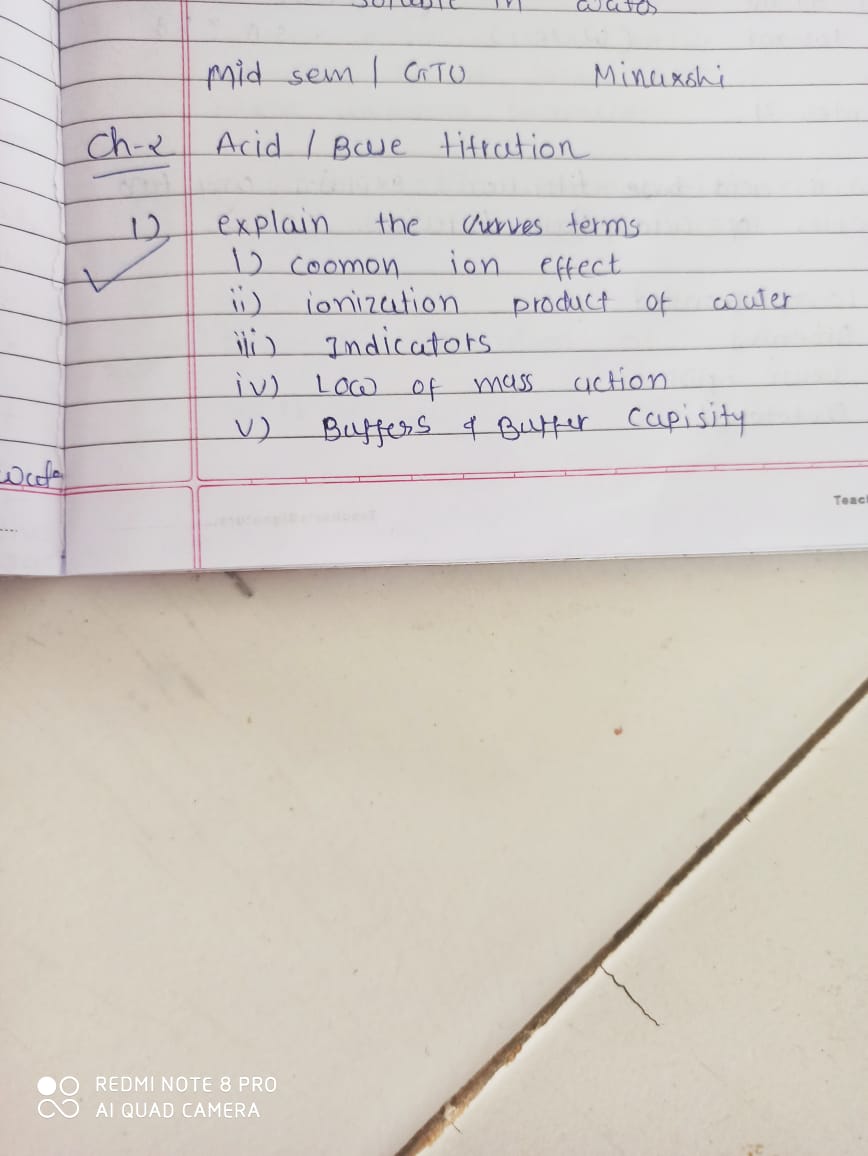 soluble in water
Mid sem / GTU Minaxshi
Ch-2 Acid / Base titration
1) explain the curves terms
1) coomon ion effect
ii) ionization product of water
iii) Indicators
iv) Low of mass action
v) Buffers & Buffer Capisity
Teac
REDMI NOTE 8 PRO
AI QUAD CAMERA